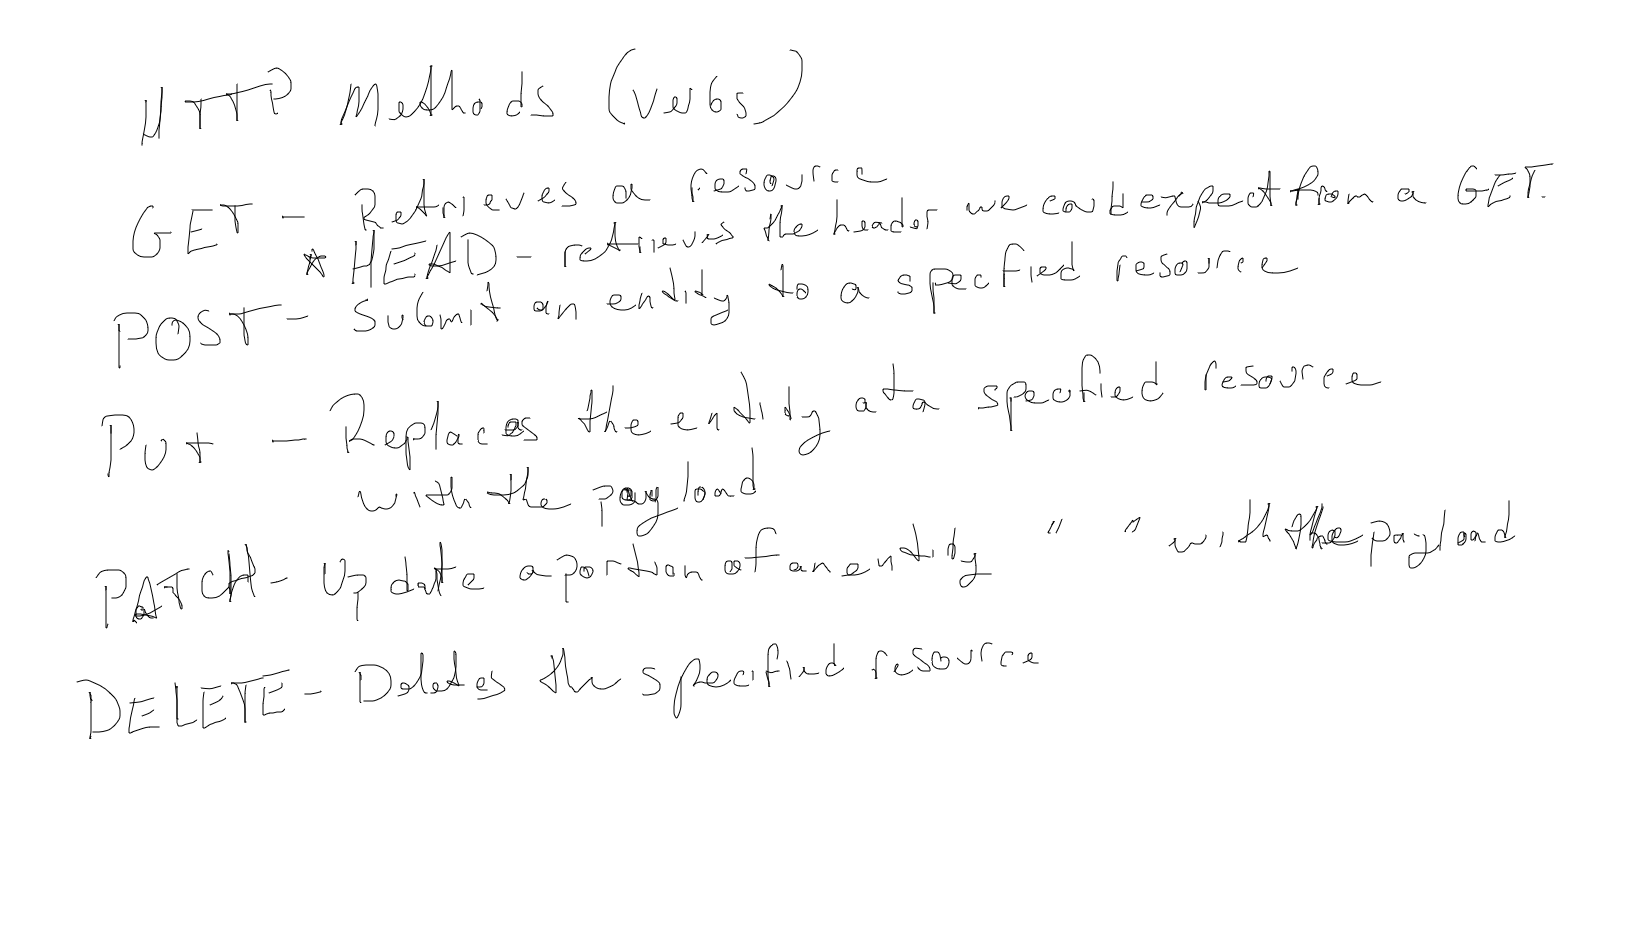 HTTP Methods (Verbs)
GET - Retrieves a resource
* HEAD - retrieves the header we could expect from a GET.
POST - Submit an entity to a specfied resource
Put - Replaces the entity at a specified resource
with the payload
PATCH - Update a portion of an entity " " with the payload
DELETE - Deletes the specified resource